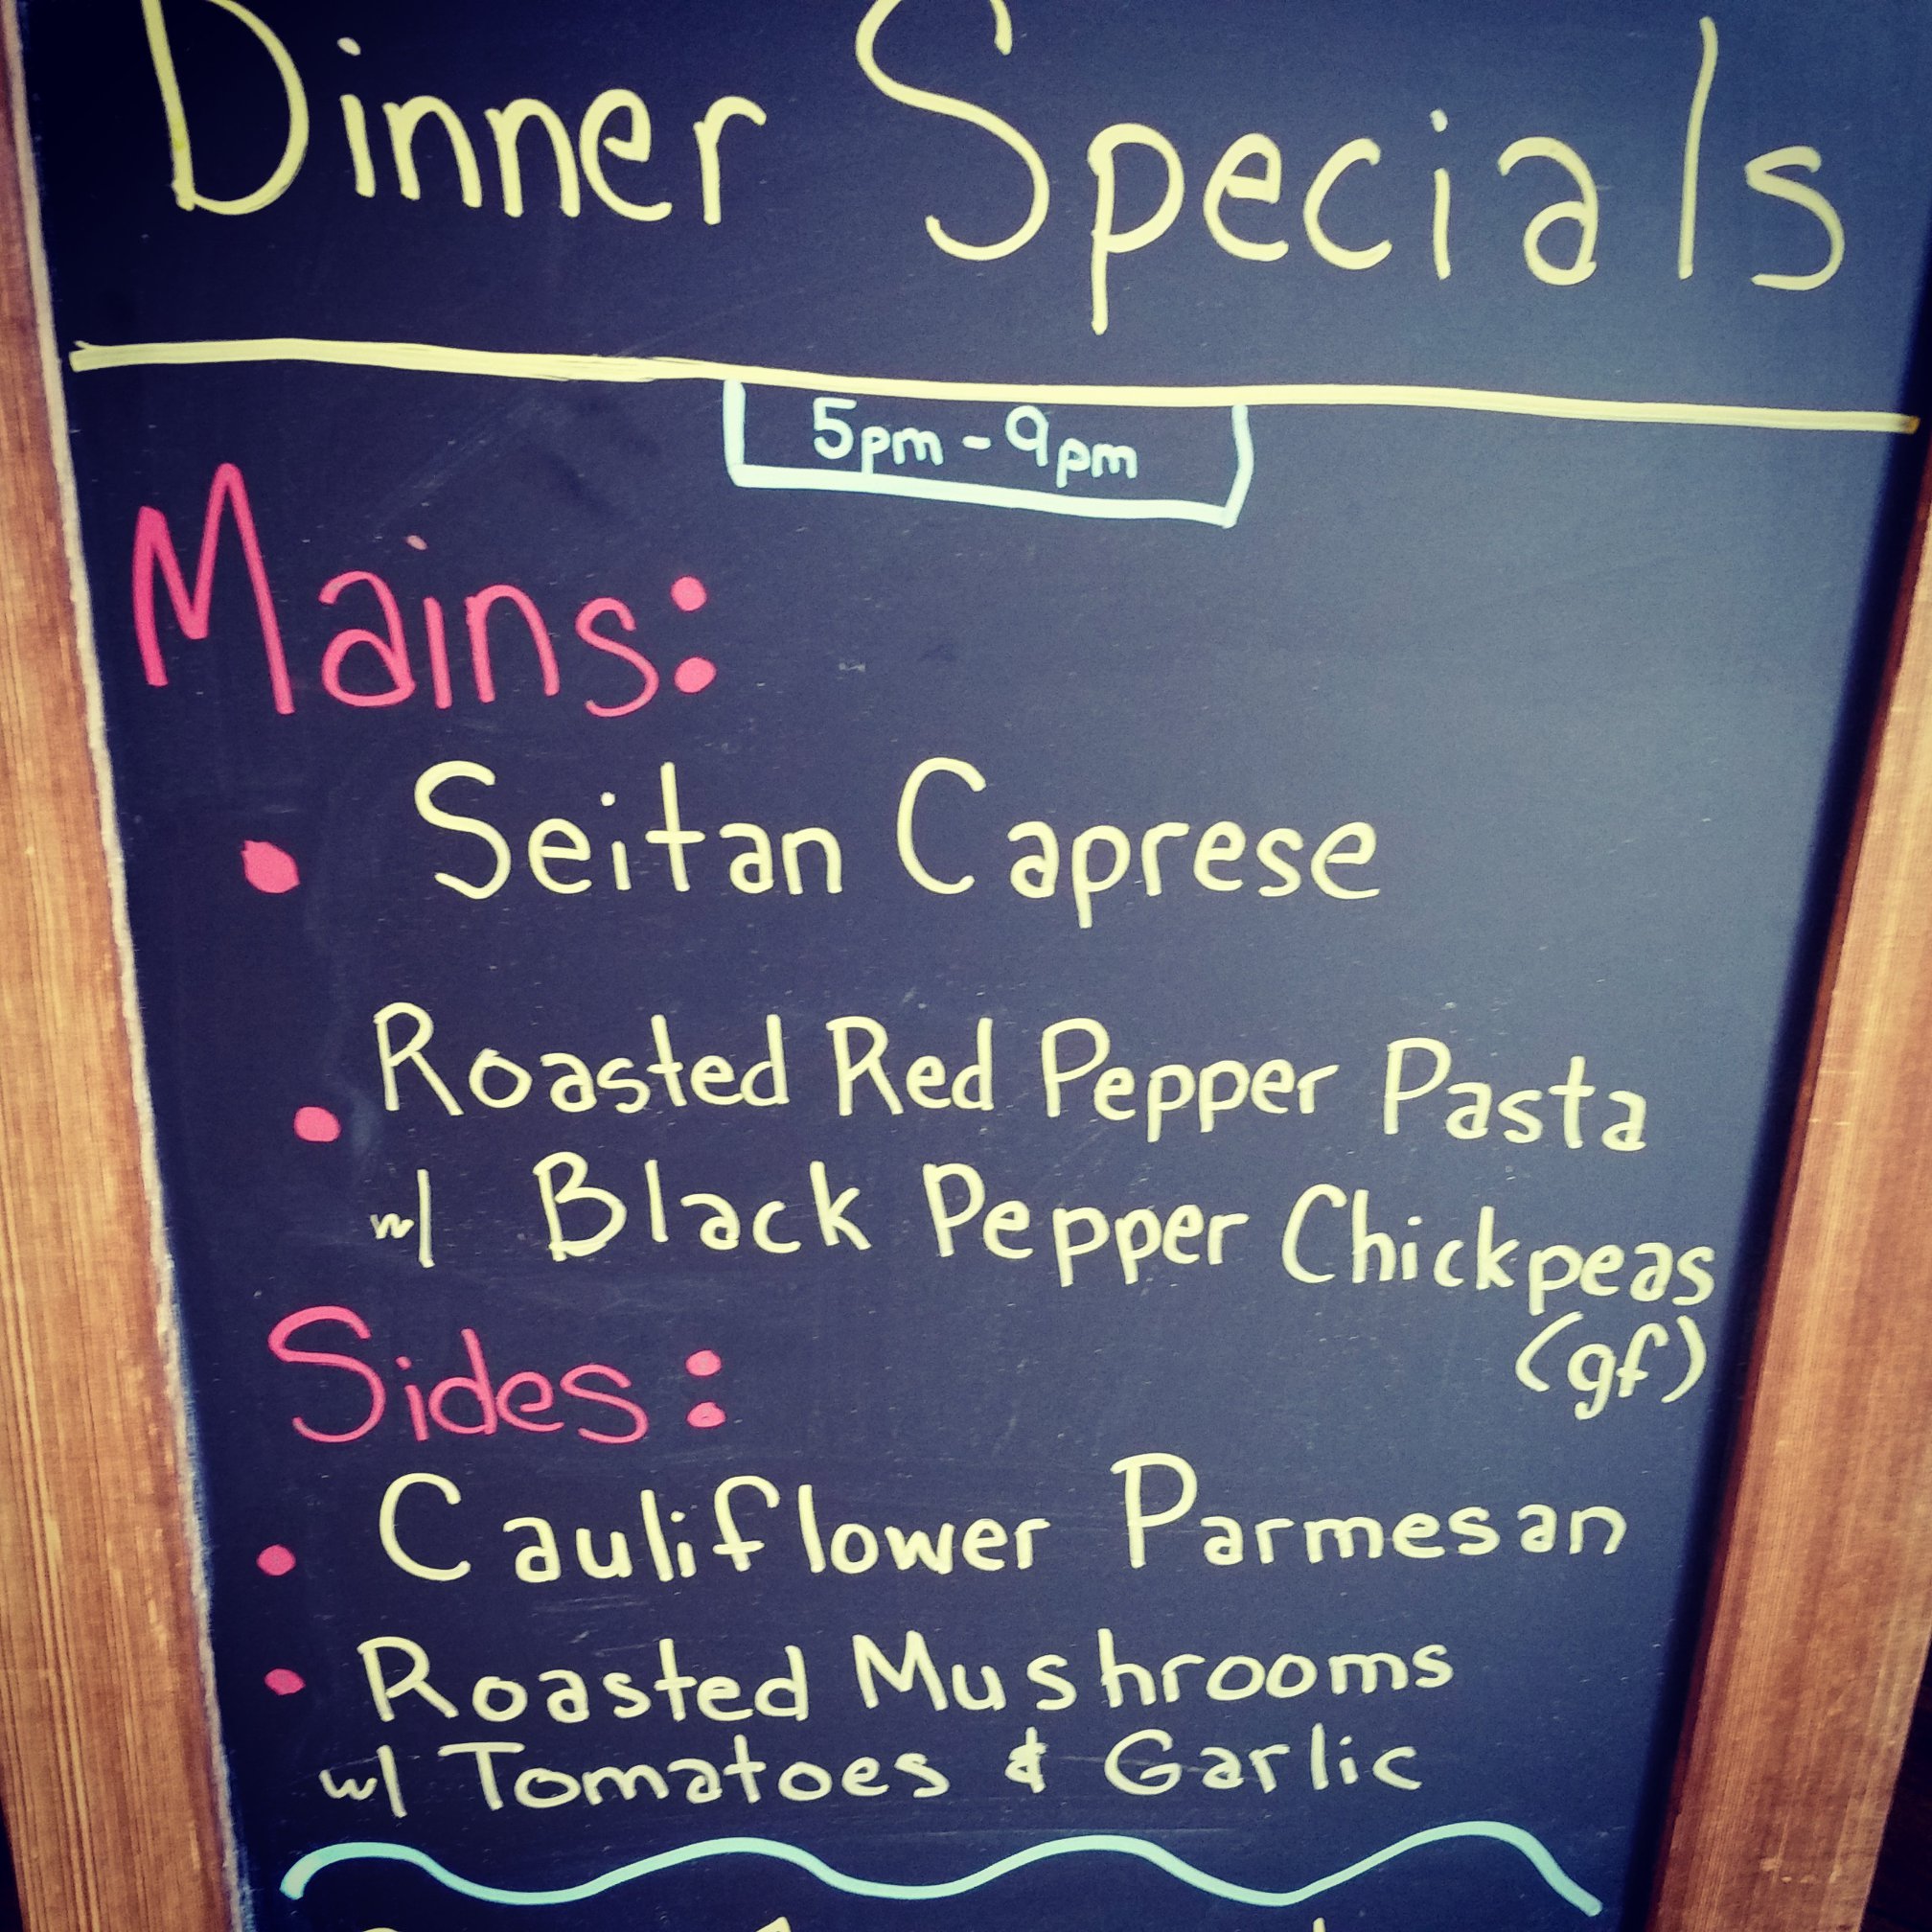 Dinner Specials
5pm - 9pm
Mains:
• Seitan Caprese
• Roasted Red Pepper Pasta
w/ Black Pepper Chickpeas
(gf)
Sides:
• Cauliflower Parmesan
• Roasted Mushrooms
w/ Tomatoes & Garlic